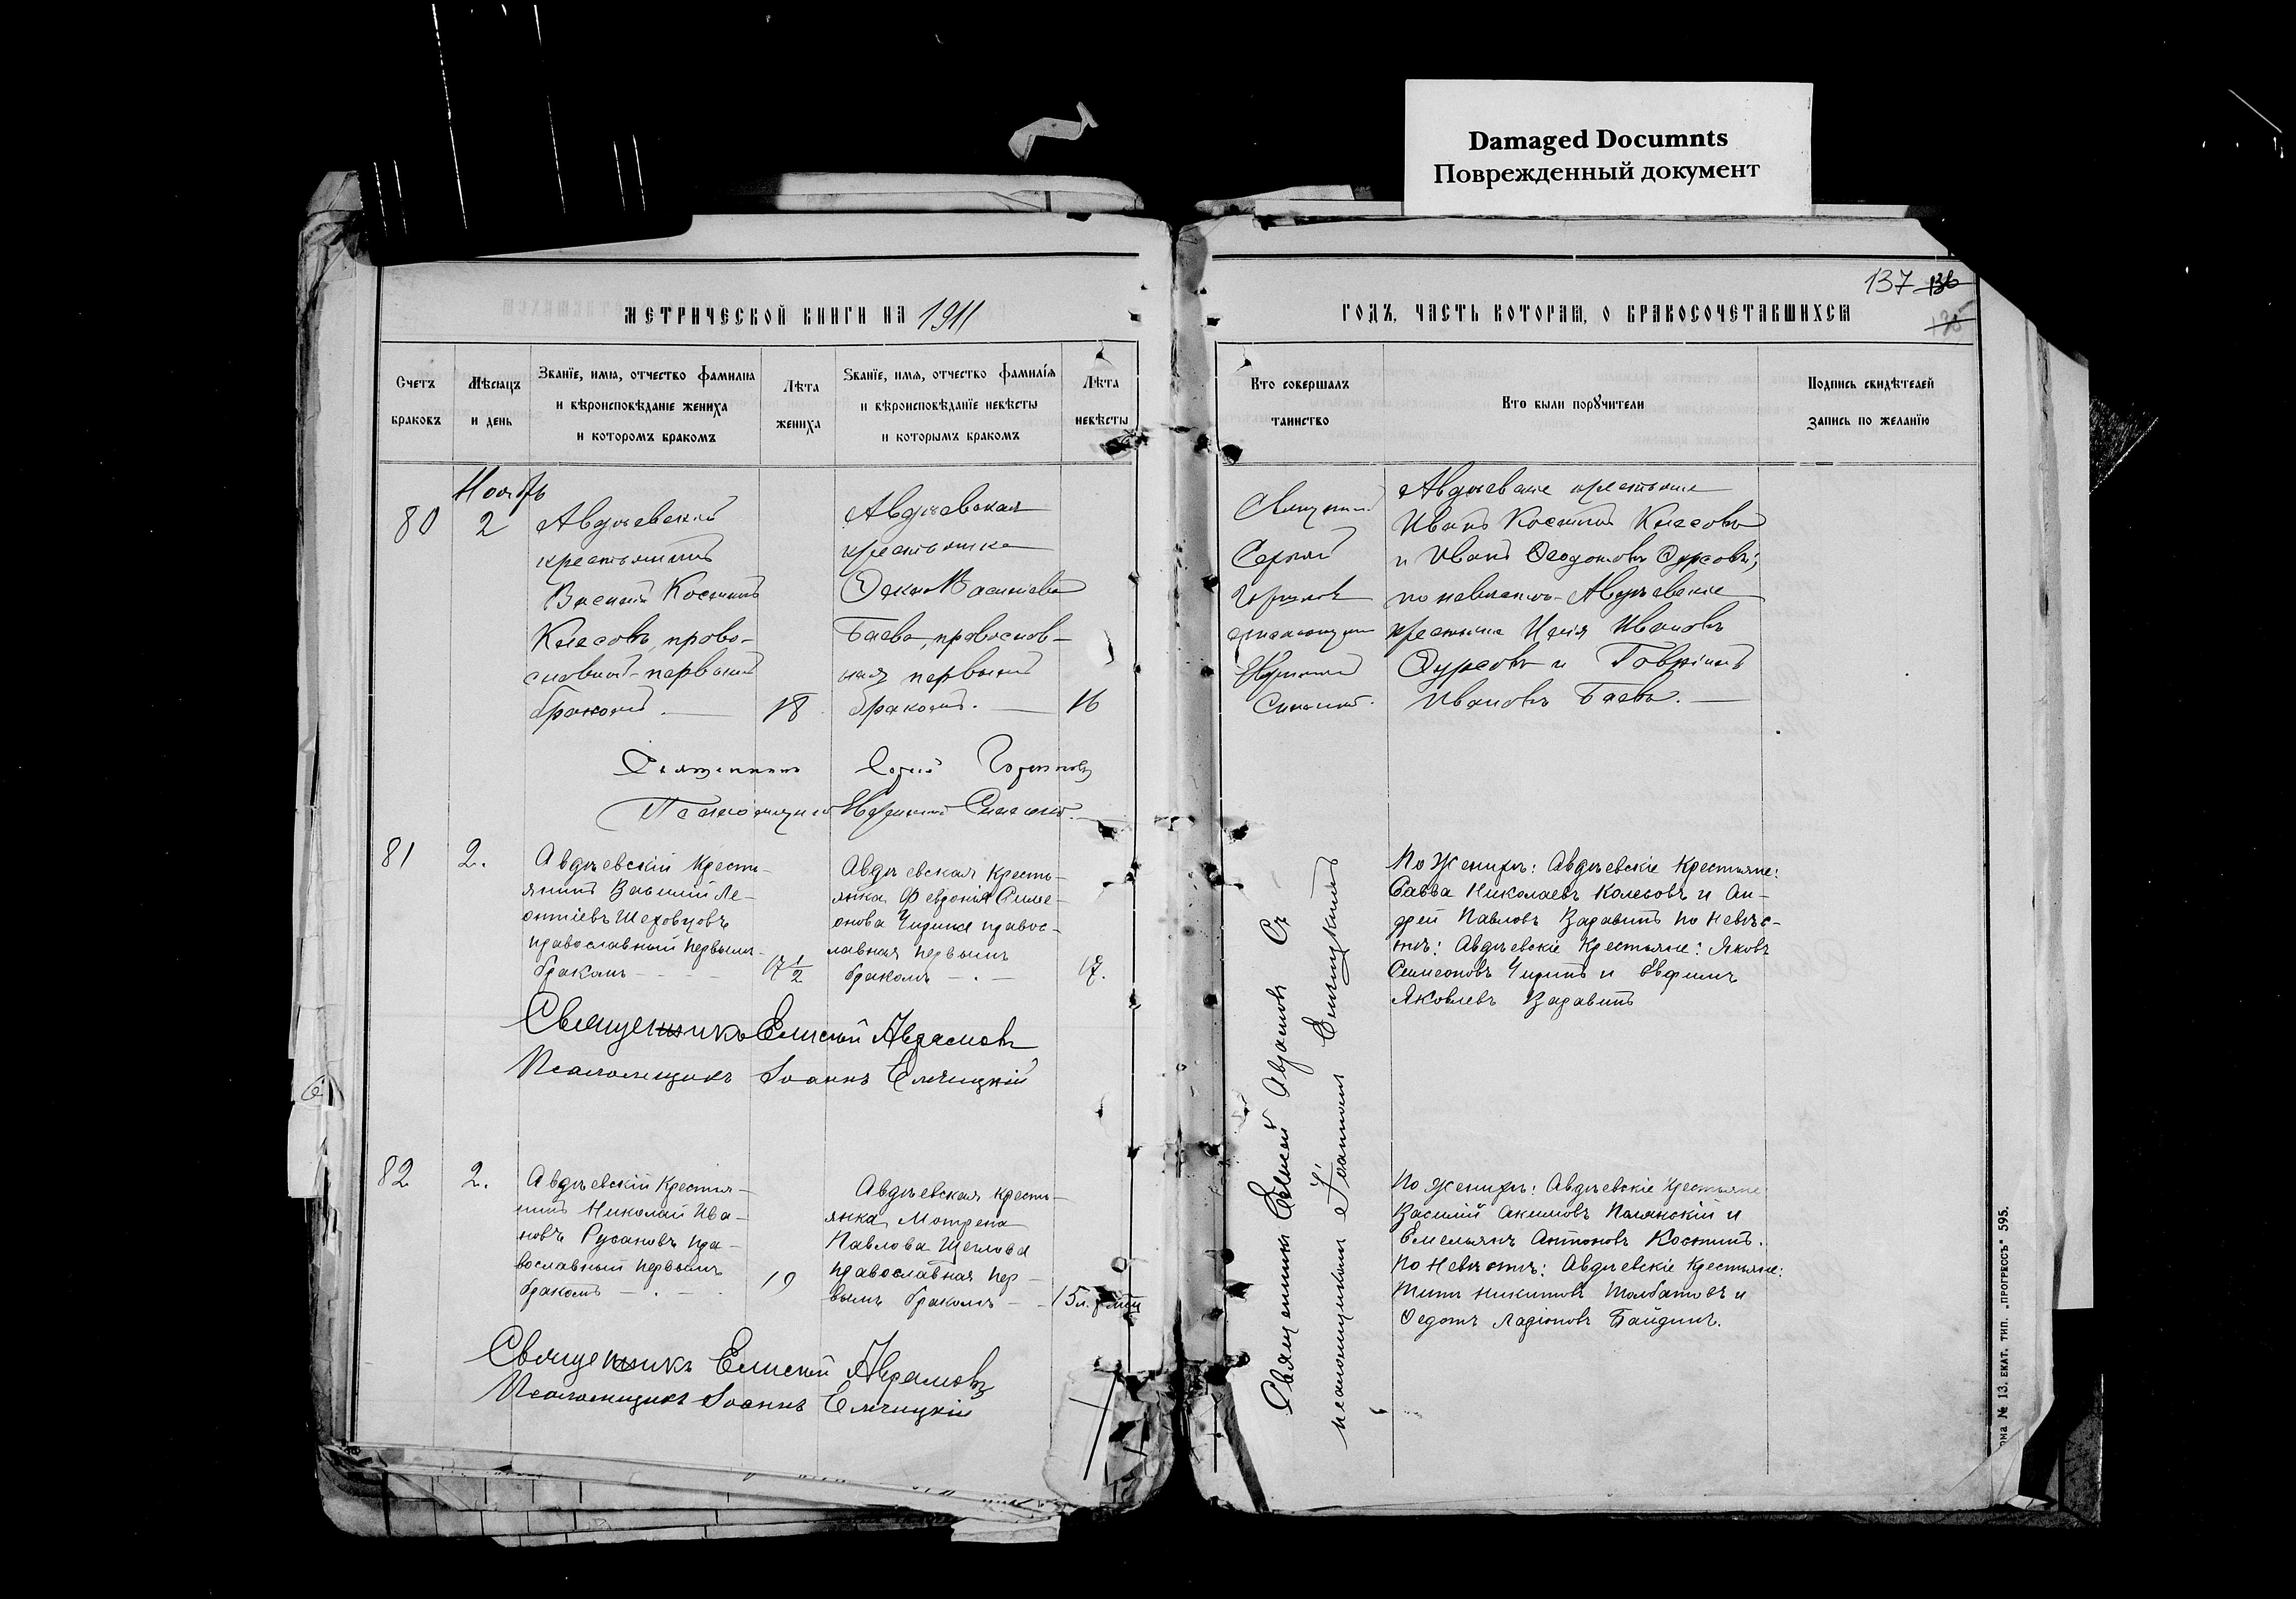 Damaged Documnts
Поврежденный документ
137 136
135
МЕТРИЧЕСКОЙ КНИГИ НА 1911
ГОДЪ, ЧАСТЬ КОТОРАЯ, О БРАКОСОЧЕТАВШИХСЯ
Счетъ браковъ
Мѣсяцъ и день
Званіе, имя, отчество фамилиа и вѣроисповѣданіе жениха и которомъ бракомъ
Лѣта жениха
Званіе, имя, отчество фамилія и вѣроисповѣданіе невѣсты и которымъ бракомъ
Лѣта невѣсты
Кто совершалъ таинство
Кто были поручители
Подпись свидѣтелей запись по желанію
Ноябрь
80
2
Авдѣевскій
крестьянинъ
Василій Костинъ
Колесовъ, право-
славный первымъ
бракомъ.
18
Авдѣевская
крестьянка
Васильева
Баева, православ-
ная первымъ
бракомъ.
16
Священникъ
Сергій
Авдѣевские крестьяне
Иванъ Костинъ Колесовъ
и Иванъ Ѳеодотовъ
по невѣстѣ Авдѣевские
крестьяне Ивановъ
и Гавріилъ
Ивановъ Баевъ.
Священникъ Сергій
Псаломщикъ
81
2.
Авдѣевскій кресть-
янинъ Василій Ле-
онтіевъ Шеховцовъ
православный первымъ
бракомъ
17 1/2
Авдѣевская кресть-
янка Февронія Симе-
онова Чирина правос-
лавная первымъ
бракомъ
17.
По Женихѣ: Авдѣевскіе Крестьяне:
Савва Николаевъ Колесовъ и Ан-
дрей Павловъ Заравинъ по невѣс-
тѣ: Авдѣевскіе Крестьяне: Яковъ
Симеоновъ Чиринъ и Ефимъ
Яковлевъ Заравинъ
Священникъ Елисей Аврамовъ
Псаломщикъ Іоаннъ Елчицкій
Священникъ Елисей Аврамовъ Съ
псаломщикомъ Іоанномъ Елчицкимъ
82
2.
Авдѣевскій Крестья-
нинъ Николай Ива-
новъ Русановъ пра-
вославный первымъ
бракомъ
19
Авдѣевская кресть-
янка Мотрена
Павлова Щеглова
православная пер-
вымъ бракомъ
15 л.
По женихѣ: Авдѣевскіе крестьяне
Василій Акимовъ Полянскій и
Емельянъ Антоновъ Костинъ.
По Невѣстѣ: Авдѣевскіе Крестьяне:
Титъ Никитовъ Толбатовъ и
Ѳедотъ Ларіоновъ Байдинъ.
Священникъ Елисей Аврамовъ
Псаломщикъ Іоаннъ Елчицкій
ома № 13. ЕКАТ. ТИП. „ПРОГРЕССЪ" 595.